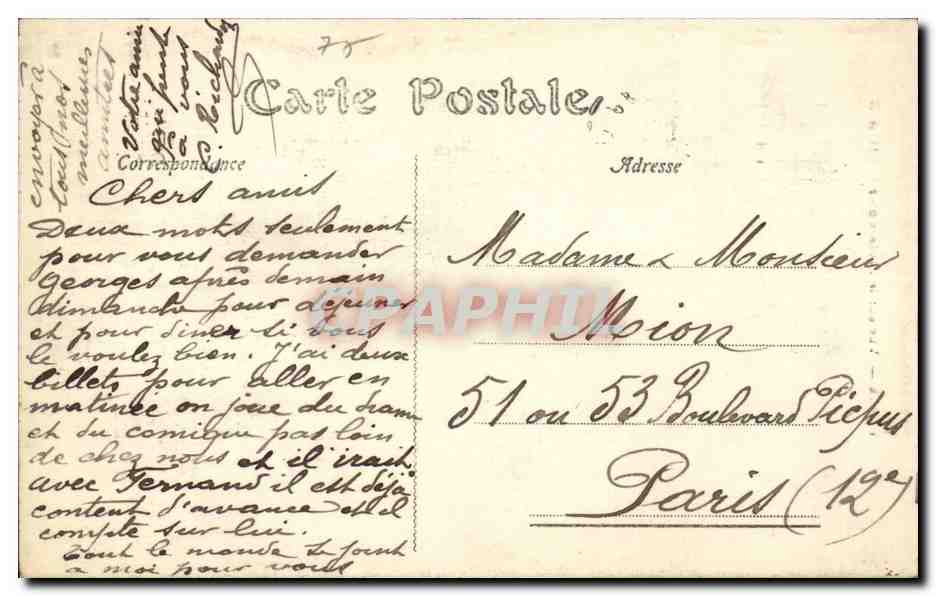 75
Carte Postale
Correspondance
Adresse
Chers amis
Deux mots seulement
pour vous demander
Georges après demain
dimanche pour déjeuner
et pour diner si vous
le voulez bien. J'ai deux
billets pour aller en
matinée on joue du drame
et du comique pas loin
de chez nous et il irait
avec Fernand il est déjà
content d'avance et il
compte sur lui.
Tout le monde se joint
a moi pour vous
envoyer à
tous nos
meilleures
amitiés
Votre amie
qui pense
a vous
S. Richard
Madame & Monsieur
Mion
51 ou 53 Boulevard Picpus
Paris (12e)
CPAPHIL